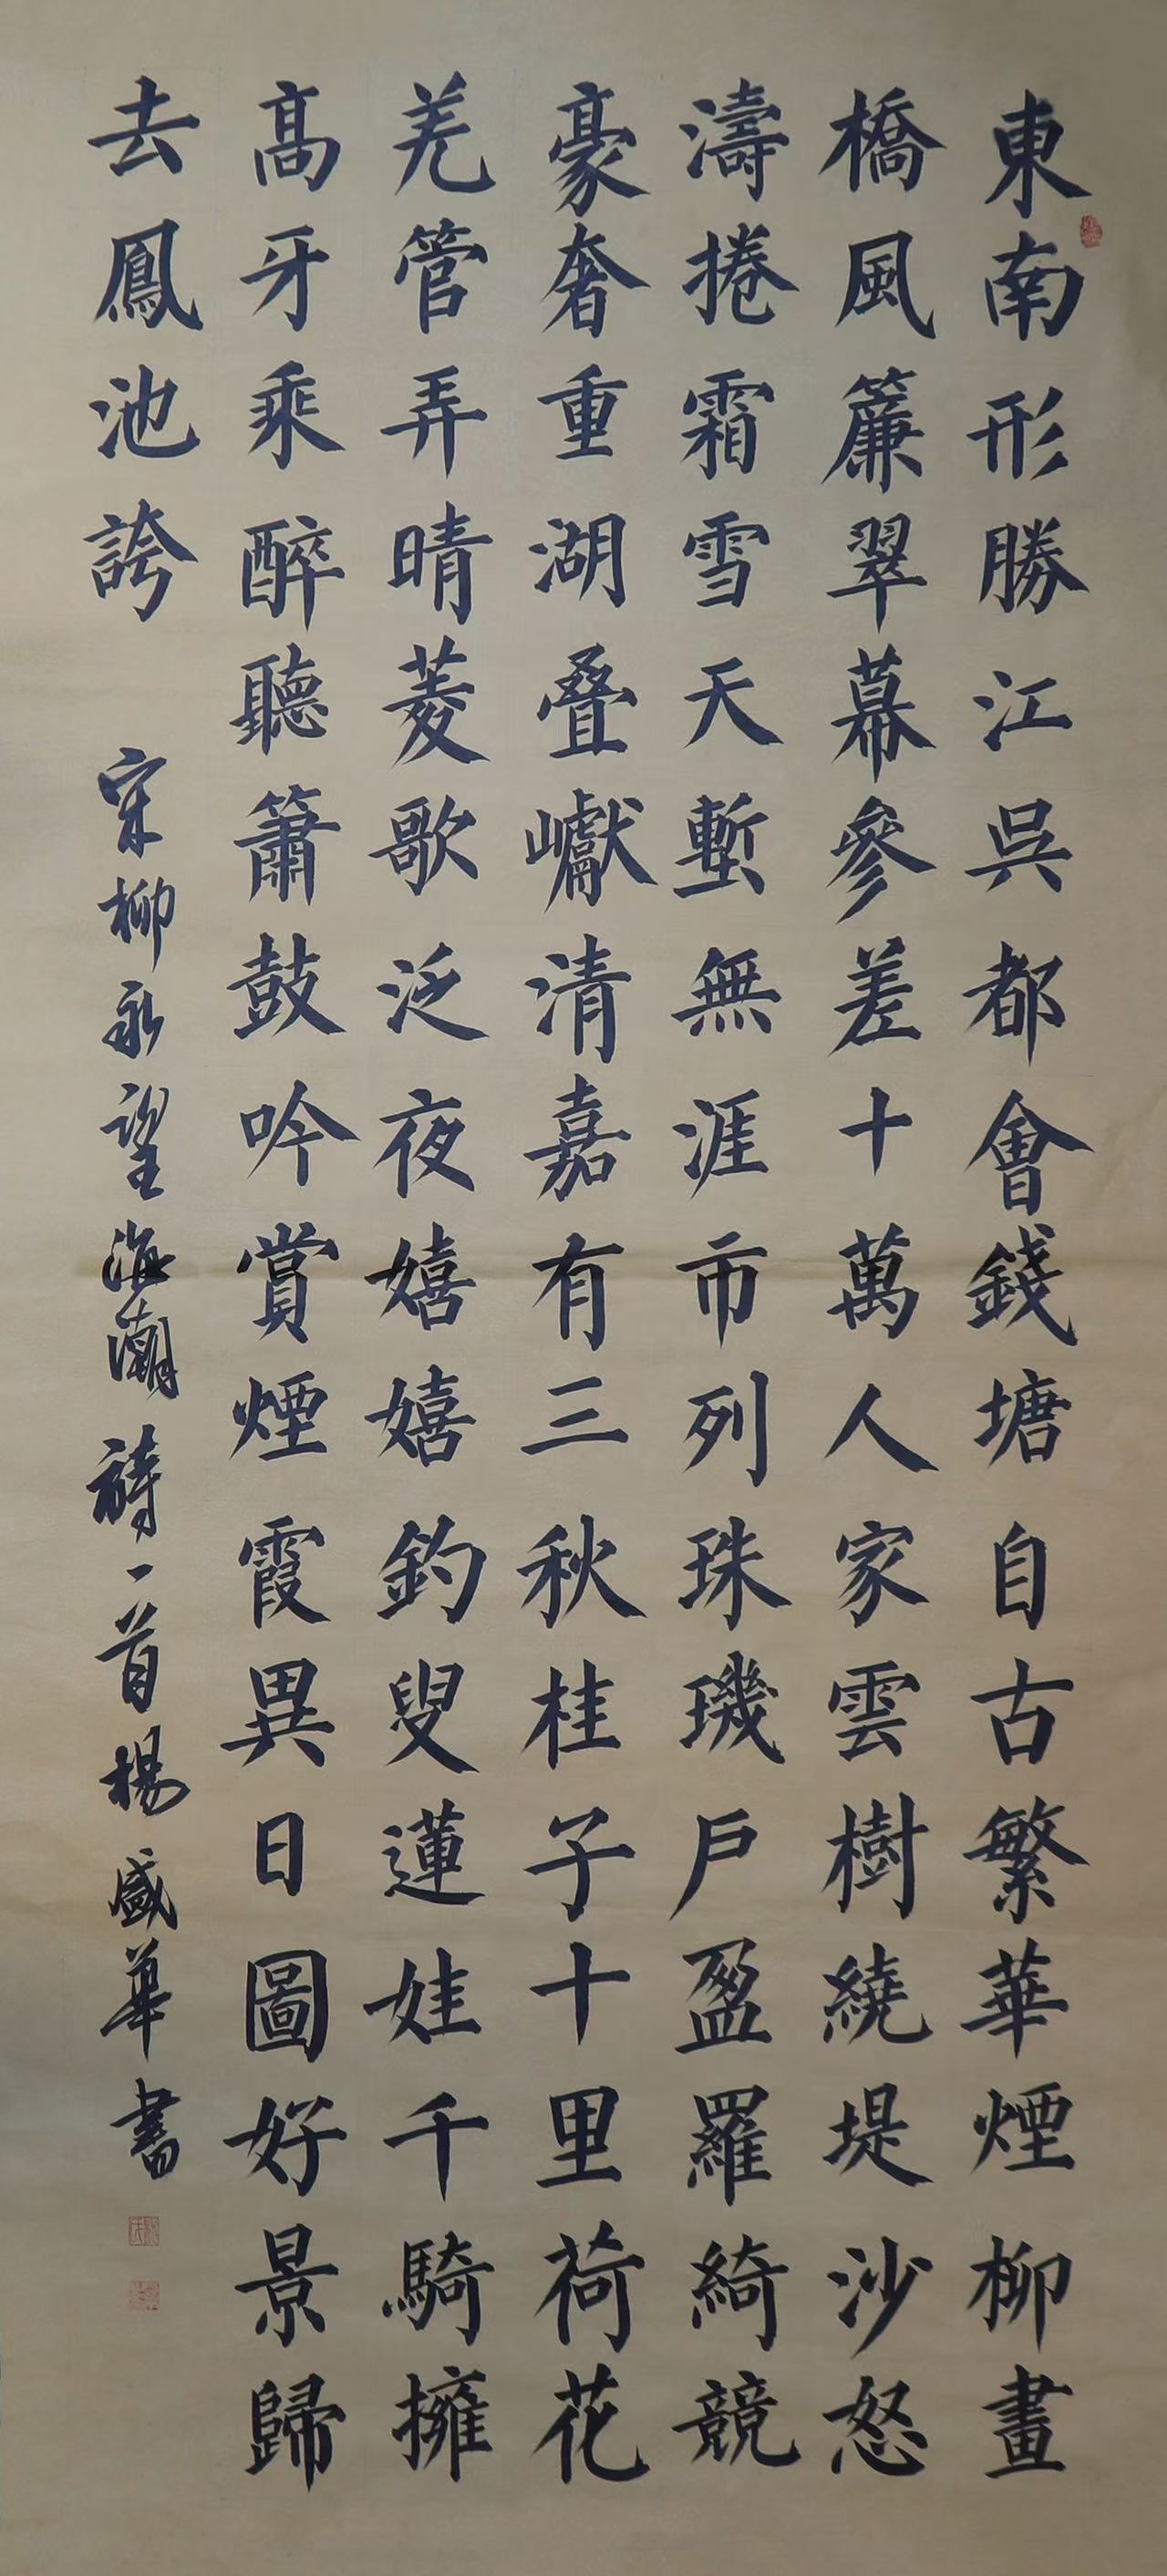 東南形勝江吳都會錢塘自古繁華煙柳畫
橋風簾翠幕參差十萬人家雲樹繞堤沙怒
濤捲霜雪天塹無涯市列珠璣戶盈羅綺競
豪奢重湖叠巘清嘉有三秋桂子十里荷花
羌管弄晴菱歌泛夜嬉嬉釣叟蓮娃千騎擁
高牙乘醉聽簫鼓吟賞煙霞異日圖好景歸
去鳳池誇
宋柳永望海潮詩一首楊盛華書